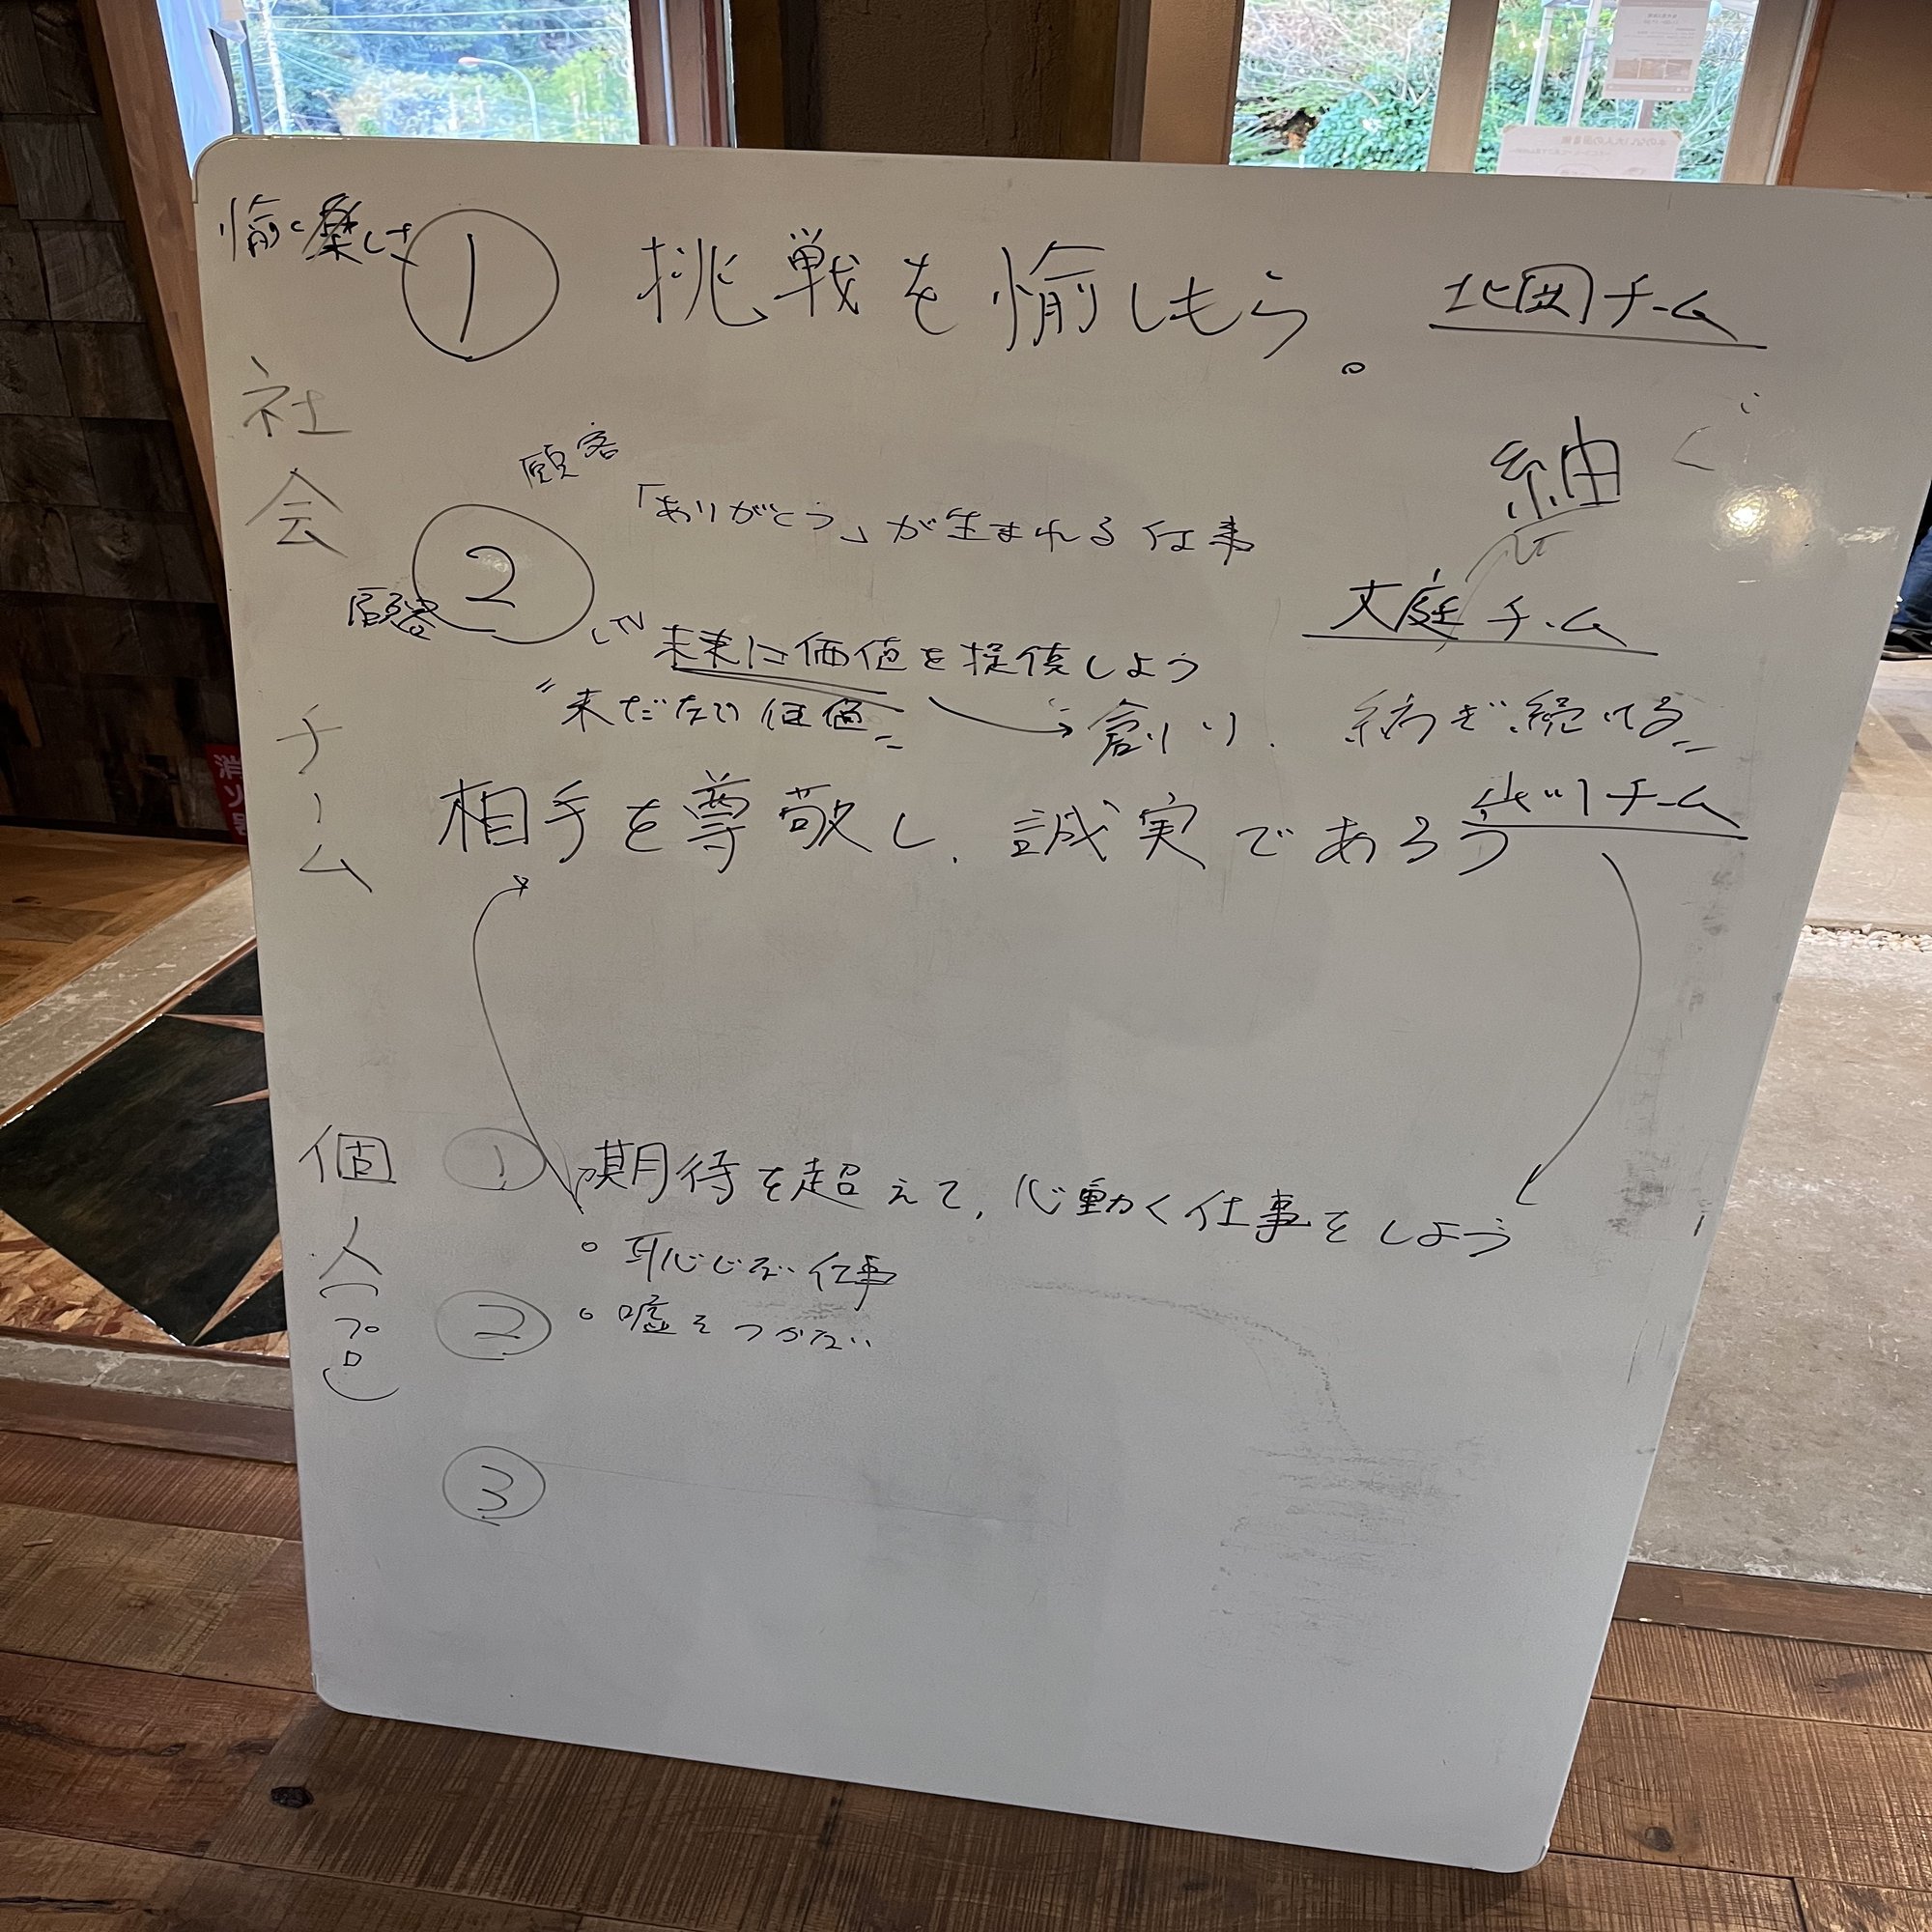 愉と楽しさ
① 挑戦を愉しもう。
チーム
社会
顧客
「ありがとう」が生まれる仕事
紬ぐ
② 
顧客
チーム
LTV 未来に価値を提供しよう
"未だない価値"
創り、紡ぎ続ける"
チーム
相手を尊敬し、誠実であろう
チーム
個人(プロ)
① 期待を超えて、心動く仕事をしよう
○恥じない仕事
② ○嘘をつかない
③